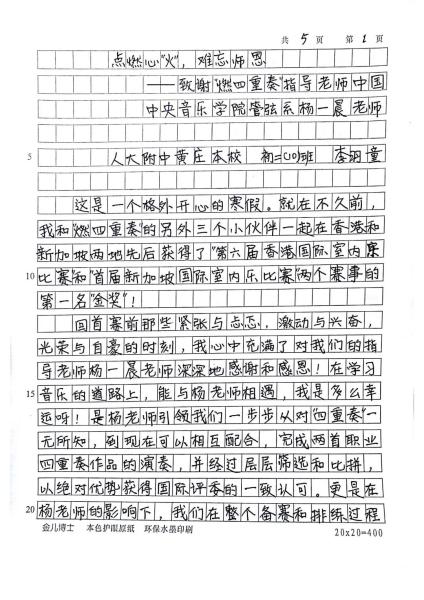 共 5 页 第 1 页
点燃心"火"，难忘师恩
——致谢"燃四重奏"指导老师中国
中央音乐学院管弦系杨一晨老师
5
人大附中黄庄本校 初二(10)班 李羽童
这是一个格外开心的寒假。就在不久前，
我和"燃四重奏"的另外三个小伙伴一起在香港和
新加坡两地先后获得了"第六届香港国际室内乐
10
比赛"和"首届新加坡国际室内乐比赛"两个赛事的
第一名"金奖"！
回首赛前那些紧张与忐忑，激动与兴奋，
光荣与自豪的时刻，我心中充满了对我们的指
导老师杨一晨老师深深地感谢和感恩！在学习
15
音乐的道路上，能与杨老师相遇，我是多么幸
运呀！是杨老师引领我们一步步从对"四重奏"一
无所知，到现在可以相互配合，完成两首职业
四重奏作品的演奏，并经过层层筛选和比拼，
以绝对优势获得国际评委的一致认可。更是在
20
杨老师的影响下，我们在整个备赛和排练过程
金儿博士 本色护眼原纸 环保水墨印刷
20×20=400